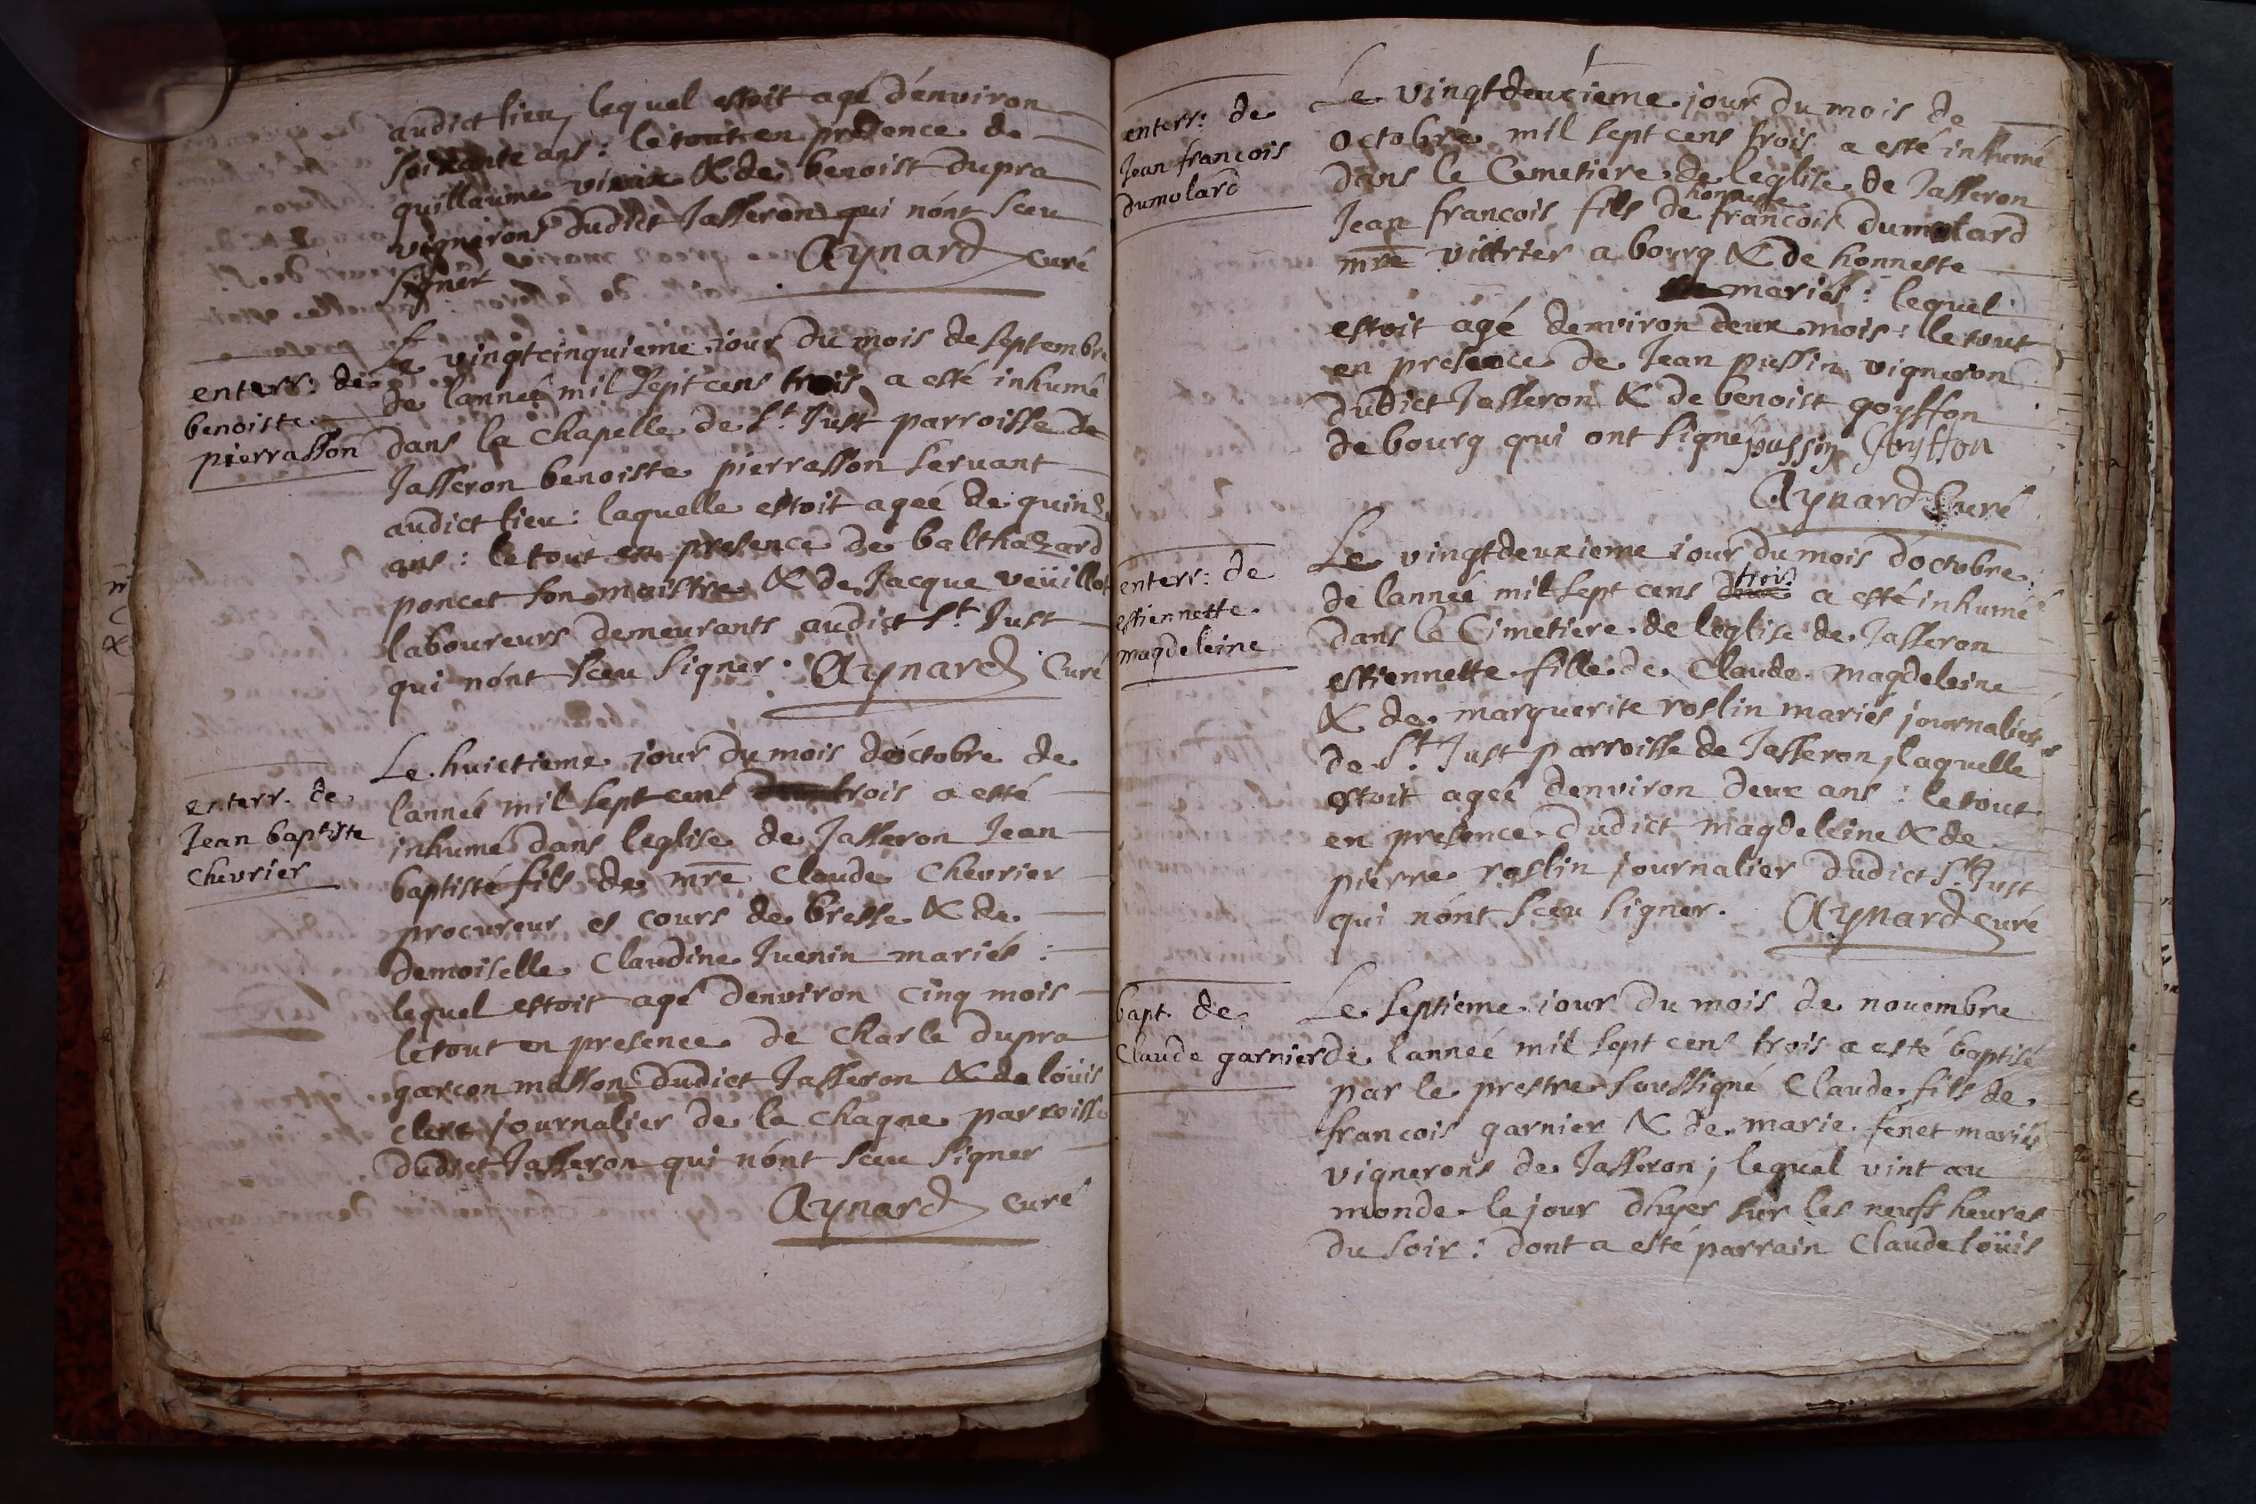 audict lieu, lequel estoit agé d'énviron
soixante ans : le tout en presence de
guillaume vieux & de benoist dupra
vignerons dudict Jasseron qui nónt sceu
signer Aynard curé
enterr: de
benoiste
pierrasson
Le vingtcinquieme jour du mois de septembre
de lanneé mil sept cens trois a esté inhumé
dans la chapelle de St. Just parroisse de
Jasseron benoiste pierrasson servant
audict lieu : laquelle estoit ageé de quinze
ans : le tout en presence de balthazard
poncet son maistre & de Jacque veüillot
laboureurs demeurants audict St. Just
qui nónt sceu signer. Aynard Curé
enterr. de
Jean baptiste
Chevrier
Le huictieme jour du mois dóctobre de
lanneé mil sept cens trois a esté
inhumé dans leglise de Jasseron Jean
baptisté fils de mre Claude Chevrier
procureur es cours de bresse & de
demoiselle Claudine Juenin mariés :
lequel estoit agé denviron cinq mois
le tout en presence de Charle dupra
garcon masson dudict Jasseron & de löuis
clerc journalier de la chagne parroisse
dudict Jasseron qui nónt sceu signer
Aynard curé
enterr: de
Jean francois
dumolard
Le vingtdeuxiéme jour du mois de
octobre mil sept cens trois a esté inhumé
dans le Cemetiere de leglise de Jasseron
Jean francois fils de honneste francois dumolard
mre vittrier a bourg & de honneste
mariés : lequel
estoit agé denviron deux mois : le tout
en presence de Jean pussin vigneron
dudict Jasseron & de benoist goyffon
de bourg qui ont signé pussin Goyffon
Aynard Curé
enterr: de
estiennette
magdeleine
Le vingtdeuxieme jour du mois dóctobre
de lanneé mil sept cens deux trois a esté inhumé
dans le Cimetiere de leglise de Jasseron
estiennette fille de Claude magdeleine
& de marguerite roslin mariés journaliers
de St. Just parroisse de Jasseron, laquelle
estoit ageé denviron deux ans : le tout
en presence dudict magdeleine & de
pierre roslin journalier dudict St. Just
qui nónt sceu signer. Aynard curé
bapt. de
Claude garnier
Le septieme jour du mois de novembre
de lanneé mil sept cens trois a esté baptisé
par le prestre soussigné Claude fils de
francois garnier & de marie fenet mariés
vignerons de Jasseron ; lequel vint au
monde le jour dhyer sur les neufs heures
du soir : dont a esté parrain Claude löuis